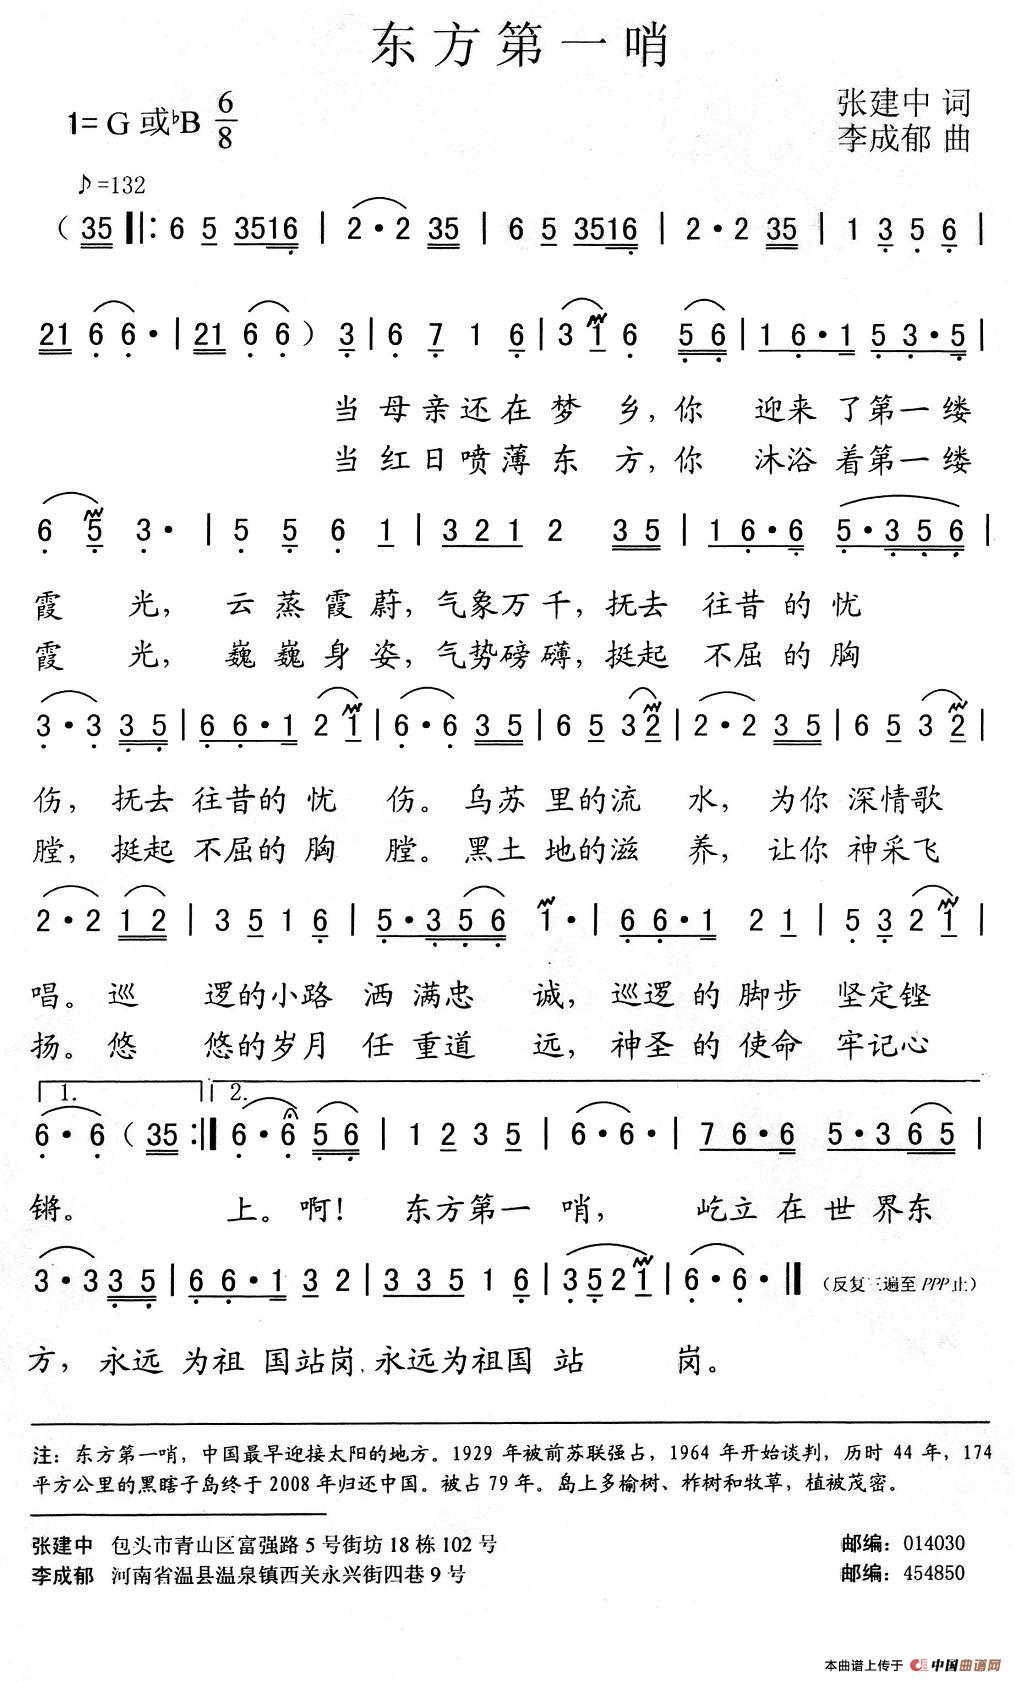 东方第一哨
1=G或♭B 6/8
张建中 词
李成郁 曲
♪=132
（35 ‖: 6 5 3516 | 2·2 35 | 6 5 3516 | 2·2 35 | 1 3 5 6 |
21 6 6· | 21 6 6）3 | 6 7 1 6 | 3 1 6 56 | 1 6·1 5 3·5 |
当母亲还在梦 乡，你 迎来 了第一缕
当红日喷薄东 方，你 沐浴 着第一缕
6 5 3· | 5 5 6 1 | 321 2 35 | 1 6·6 5·356 |
霞 光， 云蒸霞蔚，气象万千，抚去 往昔的忧
霞 光， 巍巍身姿，气势磅礴，挺起 不屈的胸
3·3 35 | 6 6·1 2 1 | 6·6 35 | 6 5 3 2 | 2·2 35 | 6 5 3 2 |
伤，抚去 往昔的忧 伤。乌苏 里的流 水，为你 深情歌
膛，挺起 不屈的胸 膛。黑土 地的滋 养，让你 神采飞
2·2 12 | 3 5 1 6 | 5·356 1· | 6 6·1 2 1 | 5 3 2 1 |
唱。巡 逻的小路 洒满忠 诚，巡逻的脚步 坚定铿
扬。悠 悠的岁月 任重道 远，神圣的使命 牢记心
1. 2.
6·6（35 :‖ 6·6 56 | 1 2 3 5 | 6·6· | 7 6·6 5·365 |
锵。 上。啊！ 东方第一 哨， 屹立在世界东
3·3 35 | 6 6·1 3 2 | 335 1 6 | 3521 | 6·6· ‖ （反复三遍至PPP止）
方，永远 为祖 国站岗，永远为祖国 站 岗。
注：东方第一哨，中国最早迎接太阳的地方。1929年被前苏联强占，1964年开始谈判，历时44年，174
平方公里的黑瞎子岛终于2008年归还中国。被占79年。岛上多榆树、柞树和牧草，植被茂密。
张建中 包头市青山区富强路5号街坊18栋102号 邮编：014030
李成郁 河南省温县温泉镇西关永兴街四巷9号 邮编：454850
本曲谱上传于 中国曲谱网